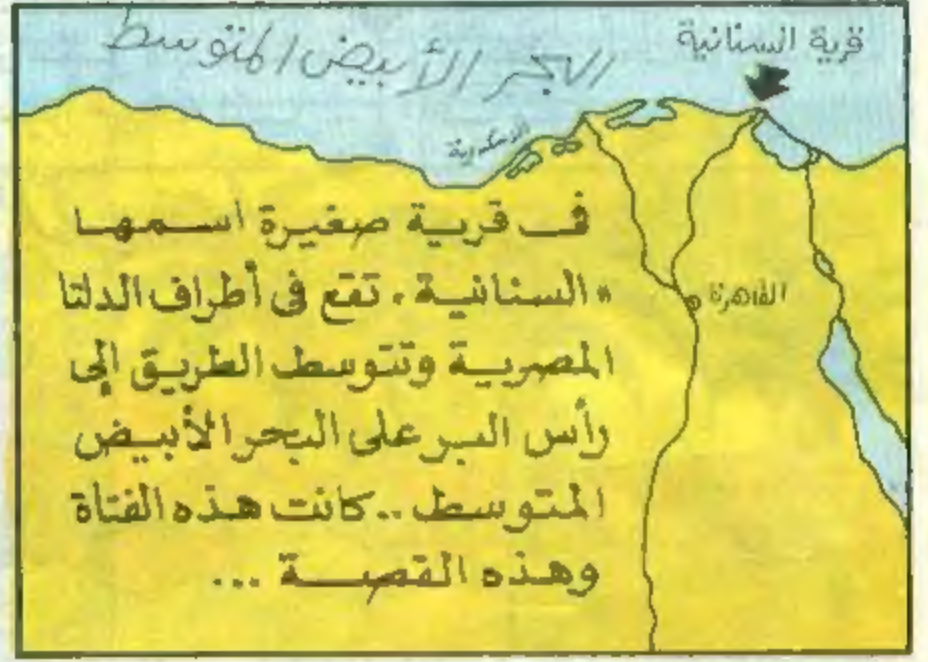 البحر الأبيض المتوسط
قرية السنانية
الإسكندرية
القاهرة
فى قرية صغيرة اسمها
«السنانية» تقع فى أطراف الدلتا
المصرية وتتوسط الطريق إلى
رأس البر على البحر الأبيض
المتوسط .. كانت هذه الفتاة
وهذه القصة ...